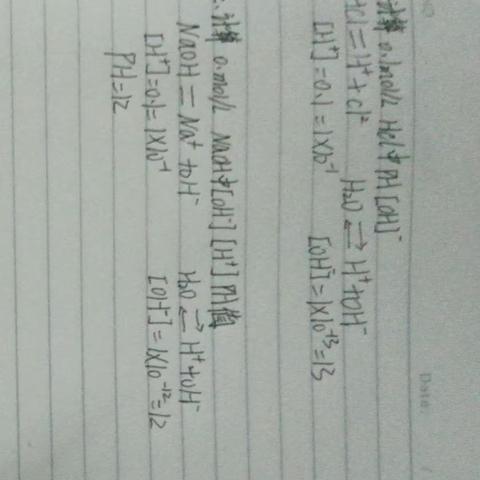 计算 0.1mol/L HCl中PH [OH]⁻
HCl=H⁺+Cl² H₂O⇌H⁺+OH⁻
[H⁺]=0.1=1×10⁻¹ [OH⁻]=1×10⁻¹³=13
2.计算 0.1mol/L NaOH中[OH⁻] [H⁺] PH值
NaOH=Na⁺+OH⁻ H₂O⇌H⁺+OH⁻
[H⁺]=0.1=1×10⁻¹ [OH⁻]=1×10⁻¹²=12
PH=12
Date